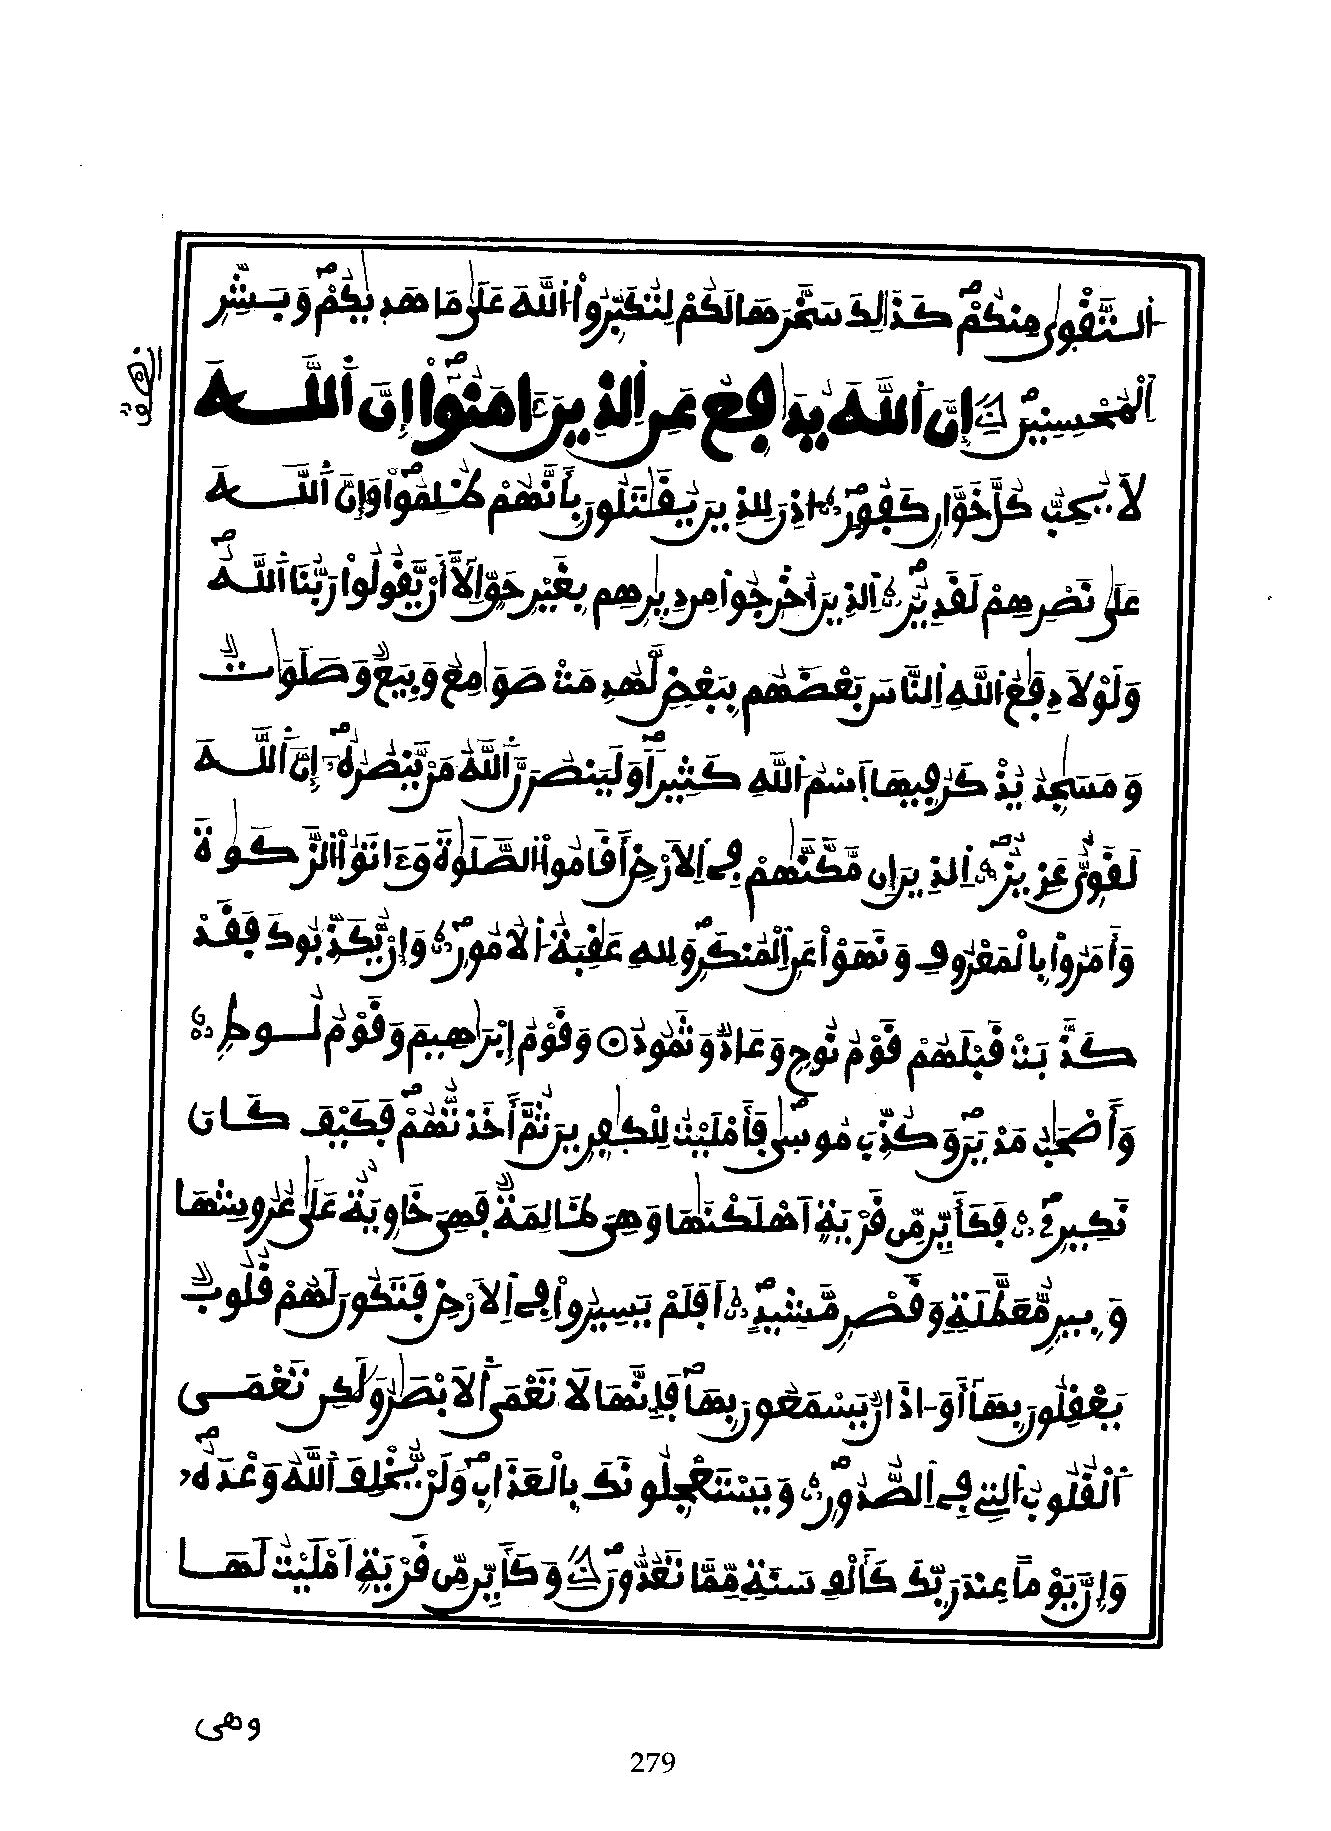 اَ۬لتَّقْو۪ىٰ مِنكُمْ كَذَٰلِكَ سَخَّرَهَا لَكُمْ لِتُكَبِّرُواْ اُ۬للَّهَ عَلَىٰ مَا هَد۪ىٰكُمْ وَبَشِّرِ
اِ۬لْمُحْسِنِينَ إِنَّ اَ۬للَّهَ يُدَٰفِعُ عَنِ اِ۬لذِينَ ءَامَنُوٓاْ إِنَّ اَ۬للَّهَ
لَا يُحِبُّ كُلَّ خَوَّانٍ كَفُورٍ اذِنَ لِلذِينَ يُقَٰتَلُونَ بِأَنَّهُمْ ظُلِمُواْ وَإِنَّ اَ۬للَّهَ
عَلَىٰ نَصْرِهِمْ لَقَدِيرٌ اِ۬لذِينَ أُخْرِجُواْ مِن دِيٰرِهِم بِغَيْرِ حَقٍّ اِلَّآ أَنْ يَّقُولُواْ رَبُّنَا اَ۬للَّهُ
وَلَوْلَا دِفَٰعُ اُ۬للَّهِ اِ۬لنَّاسَ بَعْضَهُم بِبَعْضٍ لَّهُدِمَتْ صَوَٰمِعُ وَبِيَعٌ وَصَلَوَاتٌ
وَمَسَٰجِدُ يُذْكَرُ فِيهَا اَ۪سْمُ اُ۬للَّهِ كَثِيراً وَلَيَنصُرَنَّ اَ۬للَّهُ مَنْ يَّنصُرُهُۥٓ إِنَّ اَ۬للَّهَ
لَقَوِيٌّ عَزِيزٌ اِ۬لذِينَ إِن مَّكَّنَّٰهُمْ فِے اِ۬لَارْضِ أَقَامُواْ اُ۬لصَّلَوٰةَ وَءَاتَوُاْ اُ۬لزَّكَوٰةَ
وَأَمَرُواْ بِالْمَعْرُوفِ وَنَهَوْاْ عَنِ اِ۬لْمُنكَرِ وَلِلهِ عَٰقِبَةُ اُ۬لُامُورِ وَإِنْ يُّكَذِّبُوكَ فَقَدْ
كَذَّبَتْ قَبْلَهُمْ قَوْمُ نُوحٍ وَعَادٌ وَثَمُودُ وَقَوْمُ إِبْرَٰهِيمَ وَقَوْمُ لُوطٍ
وَأَصْحَٰبُ مَدْيَنَ وَكُذِّبَ مُوس۪ىٰ فَأَمْلَيْتُ لِلْكٰ۪فِرِينَ ثُمَّ أَخَذتُّهُمْ فَكَيْفَ كَانَ
نَكِيرِۦ فَكَأَيِّن مِّن قَرْيَةٍ اَهْلَكْنَٰهَا وَهِىَ ظَالِمَةٌ فَهِىَ خَاوِيَةٌ عَلَىٰ عُرُوشِهَا
وَبِيرٍ مُّعَطَّلَةٍ وَقَصْرٍ مَّشِيدٍ اَفَلَمْ يَسِيرُواْ فِے اِ۬لَارْضِ فَتَكُونَ لَهُمْ قُلُوبٌ
يَعْقِلُونَ بِهَآ أَوَ اذَانٌ يَسْمَعُونَ بِهَا فَإِنَّهَا لَا تَعْمَى اَ۬لَابْصَٰرُ وَلَٰكِن تَعْمَى
اَ۬لْقُلُوبُ اُ۬لتِے فِے اِ۬لصُّدُورِ وَيَسْتَعْجِلُونَكَ بِالْعَذَابِ وَلَنْ يُّخْلِفَ اَ۬للَّهُ وَعْدَهُۥ
وَإِنَّ يَوْماً عِندَ رَبِّكَ كَأَلْفِ سَنَةٍ مِّمَّا تَعُدُّونَ وَكَأَيِّن مِّن قَرْيَةٍ اَمْلَيْتُ لَهَا
وهى
279